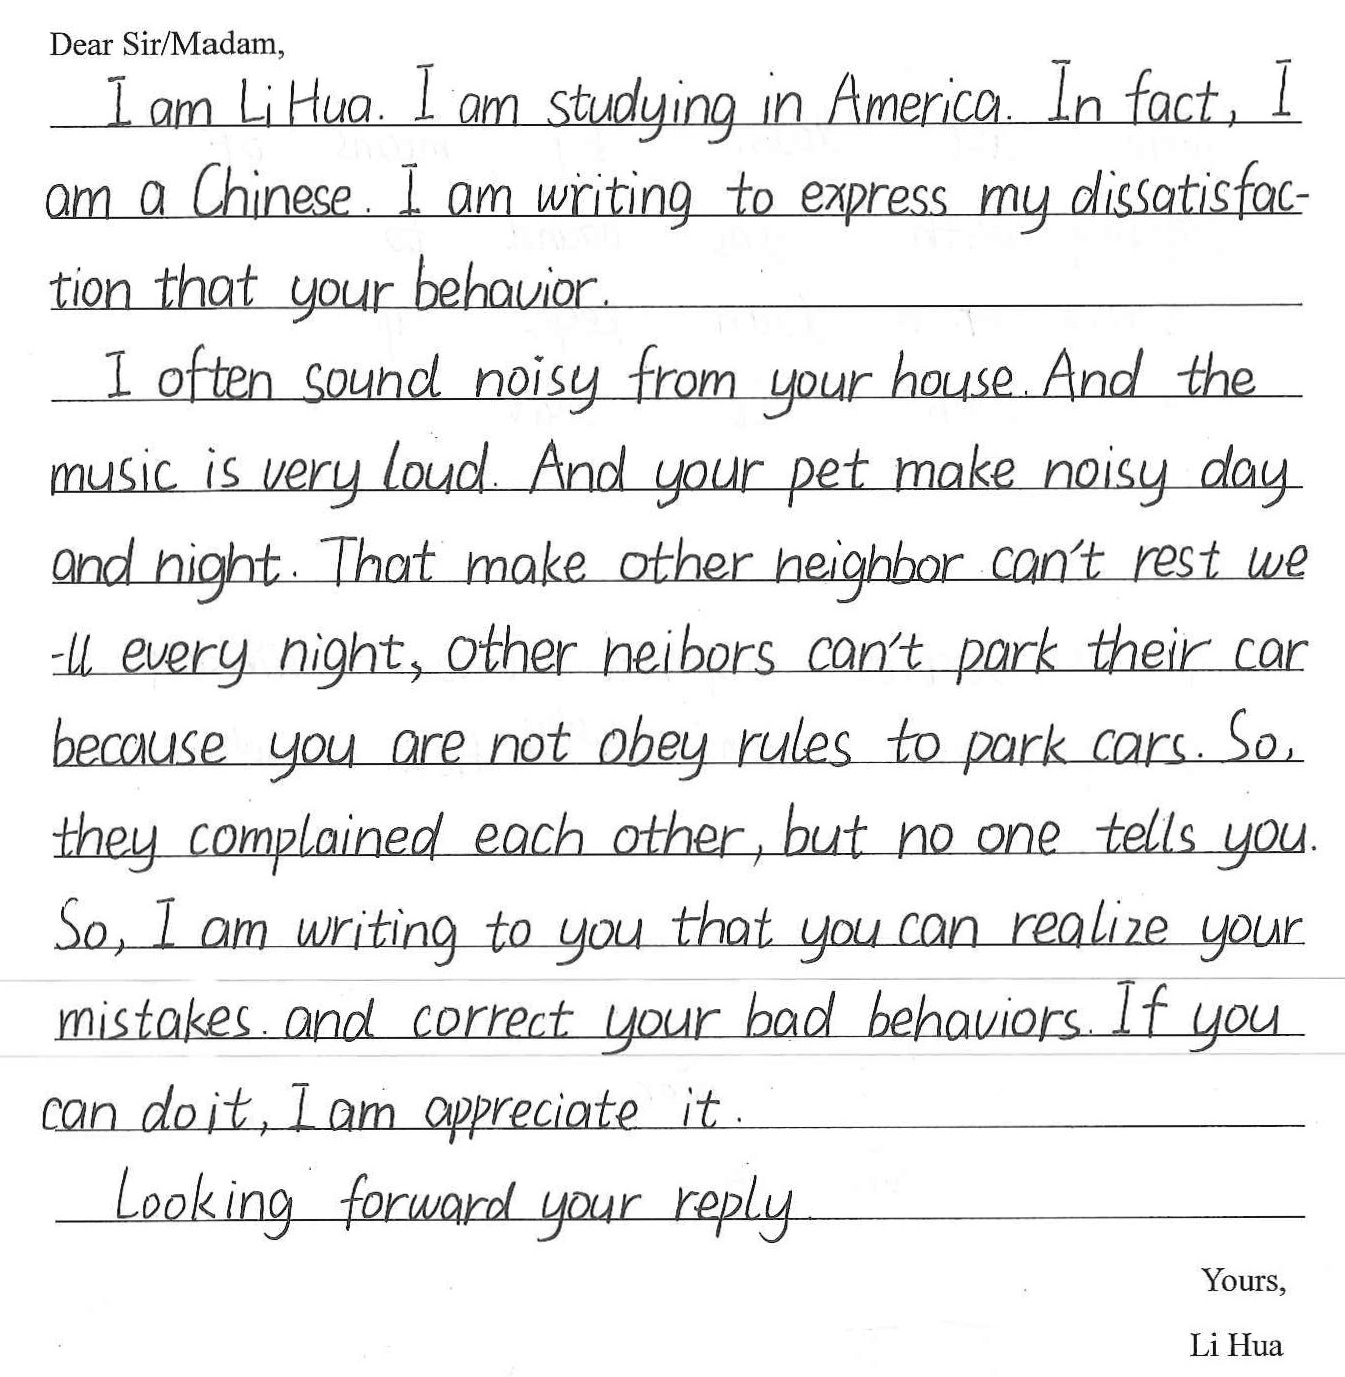 Dear Sir/Madam,
I am Li Hua. I am studying in America. In fact, I
am a Chinese. I am writing to express my dissatisfac-
tion that your behavior.
I often sound noisy from your house. And the
music is very loud. And your pet make noisy day
and night. That make other neighbor can't rest we
-ll every night, other neibors can't park their car
because you are not obey rules to park cars. So,
they complained each other, but no one tells you.
So, I am writing to you that you can realize your
mistakes. and correct your bad behaviors. If you
can do it, I am appreciate it.
Looking forward your reply
Yours,
Li Hua